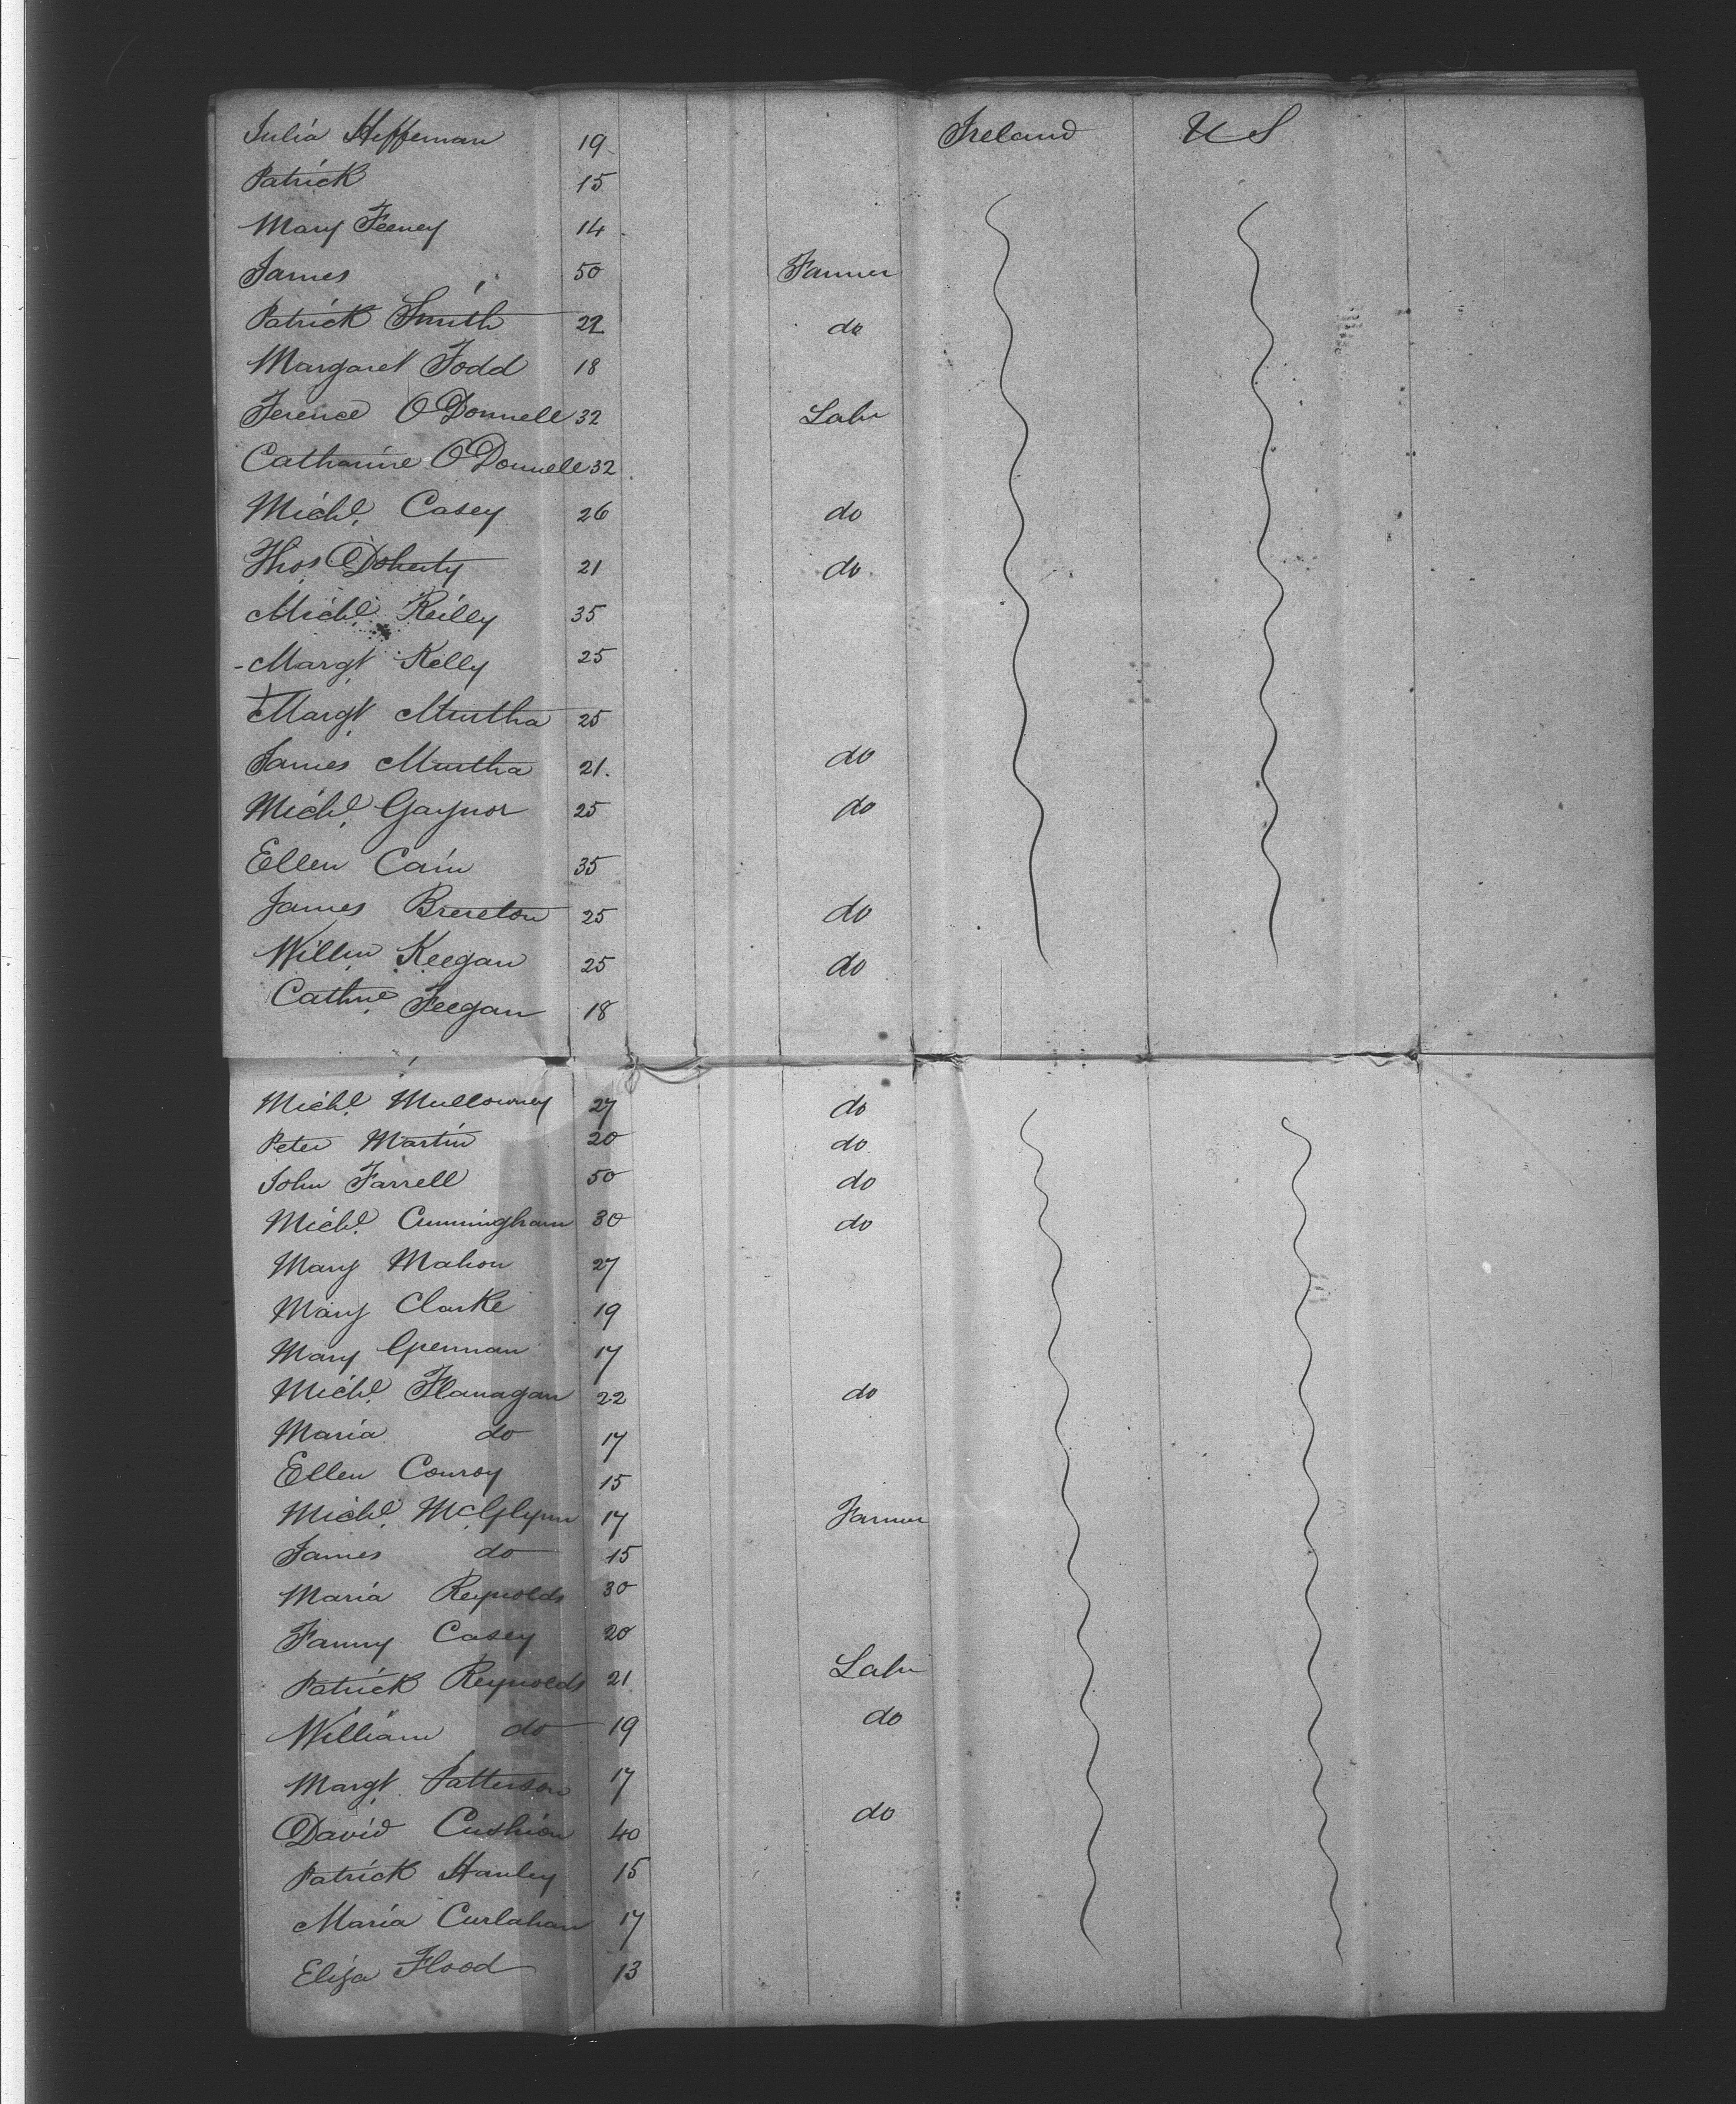 Julia Heffernan 19 Ireland U S
Patrick 15
Mary Feeney 14
James " 50 Farmer
Patrick Smith 22 do
Margaret Todd 18
Terence O'Donnell 32 Labr
Catharine O'Donnell 32
Michl. Casey 26 do
Thos Doherty 21 do
Michl. Reilly 35
Margt. Kelly 25
Margt. Murtha 25
James Murtha 21. do
Michl. Gaynor 25 do
Ellen Cain 35
James Brereton 25 do
Willm Keegan 25 do
Cathne. Feegan 18
Michl. Mullowney 27 do
Peter Martin 20 do
John Farrell 50 do
Michl. Cunningham 30 do
Mary Mahon 27
Mary Clarke 19
Mary 17
Michl. Flanagan 22 do
Maria do 17
Ellen Conroy 15
Michl. McGlynn 17 Farmer
James do 15
Maria Reynolds 30
Fanny Casey 20
Patrick Reynolds 21 Labr
William do 19 do
Margt. Patterson 17
David Cushion 40 do
Patrick Hanley 15
Maria Curlahan 17
Eliza Flood 13